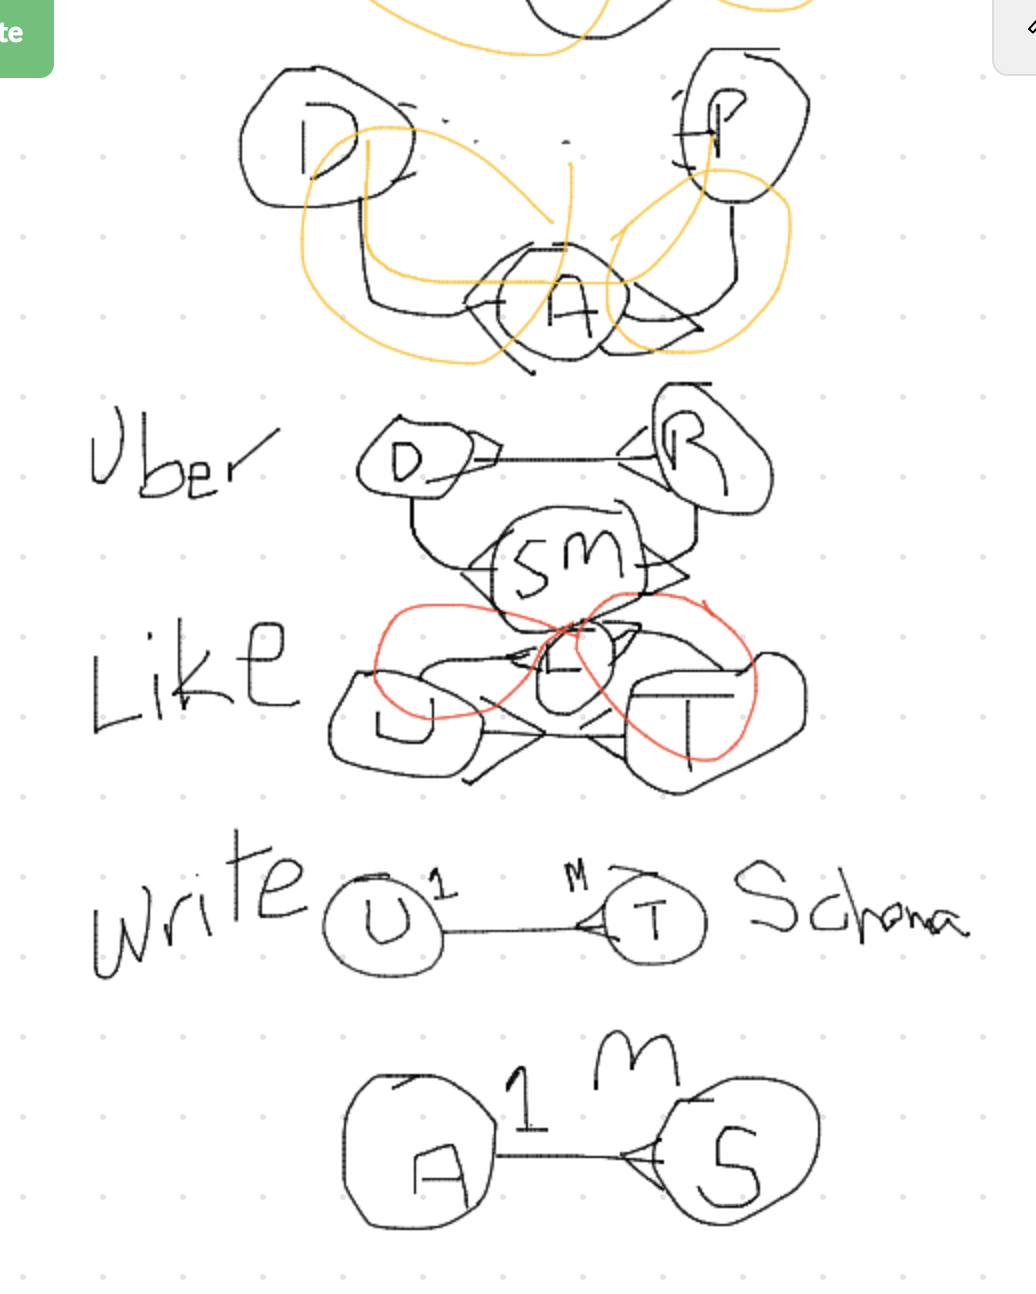 te
D P
A
Uber D R
SM
Like L
U T
Write U 1 M T Schama
1 M
A S